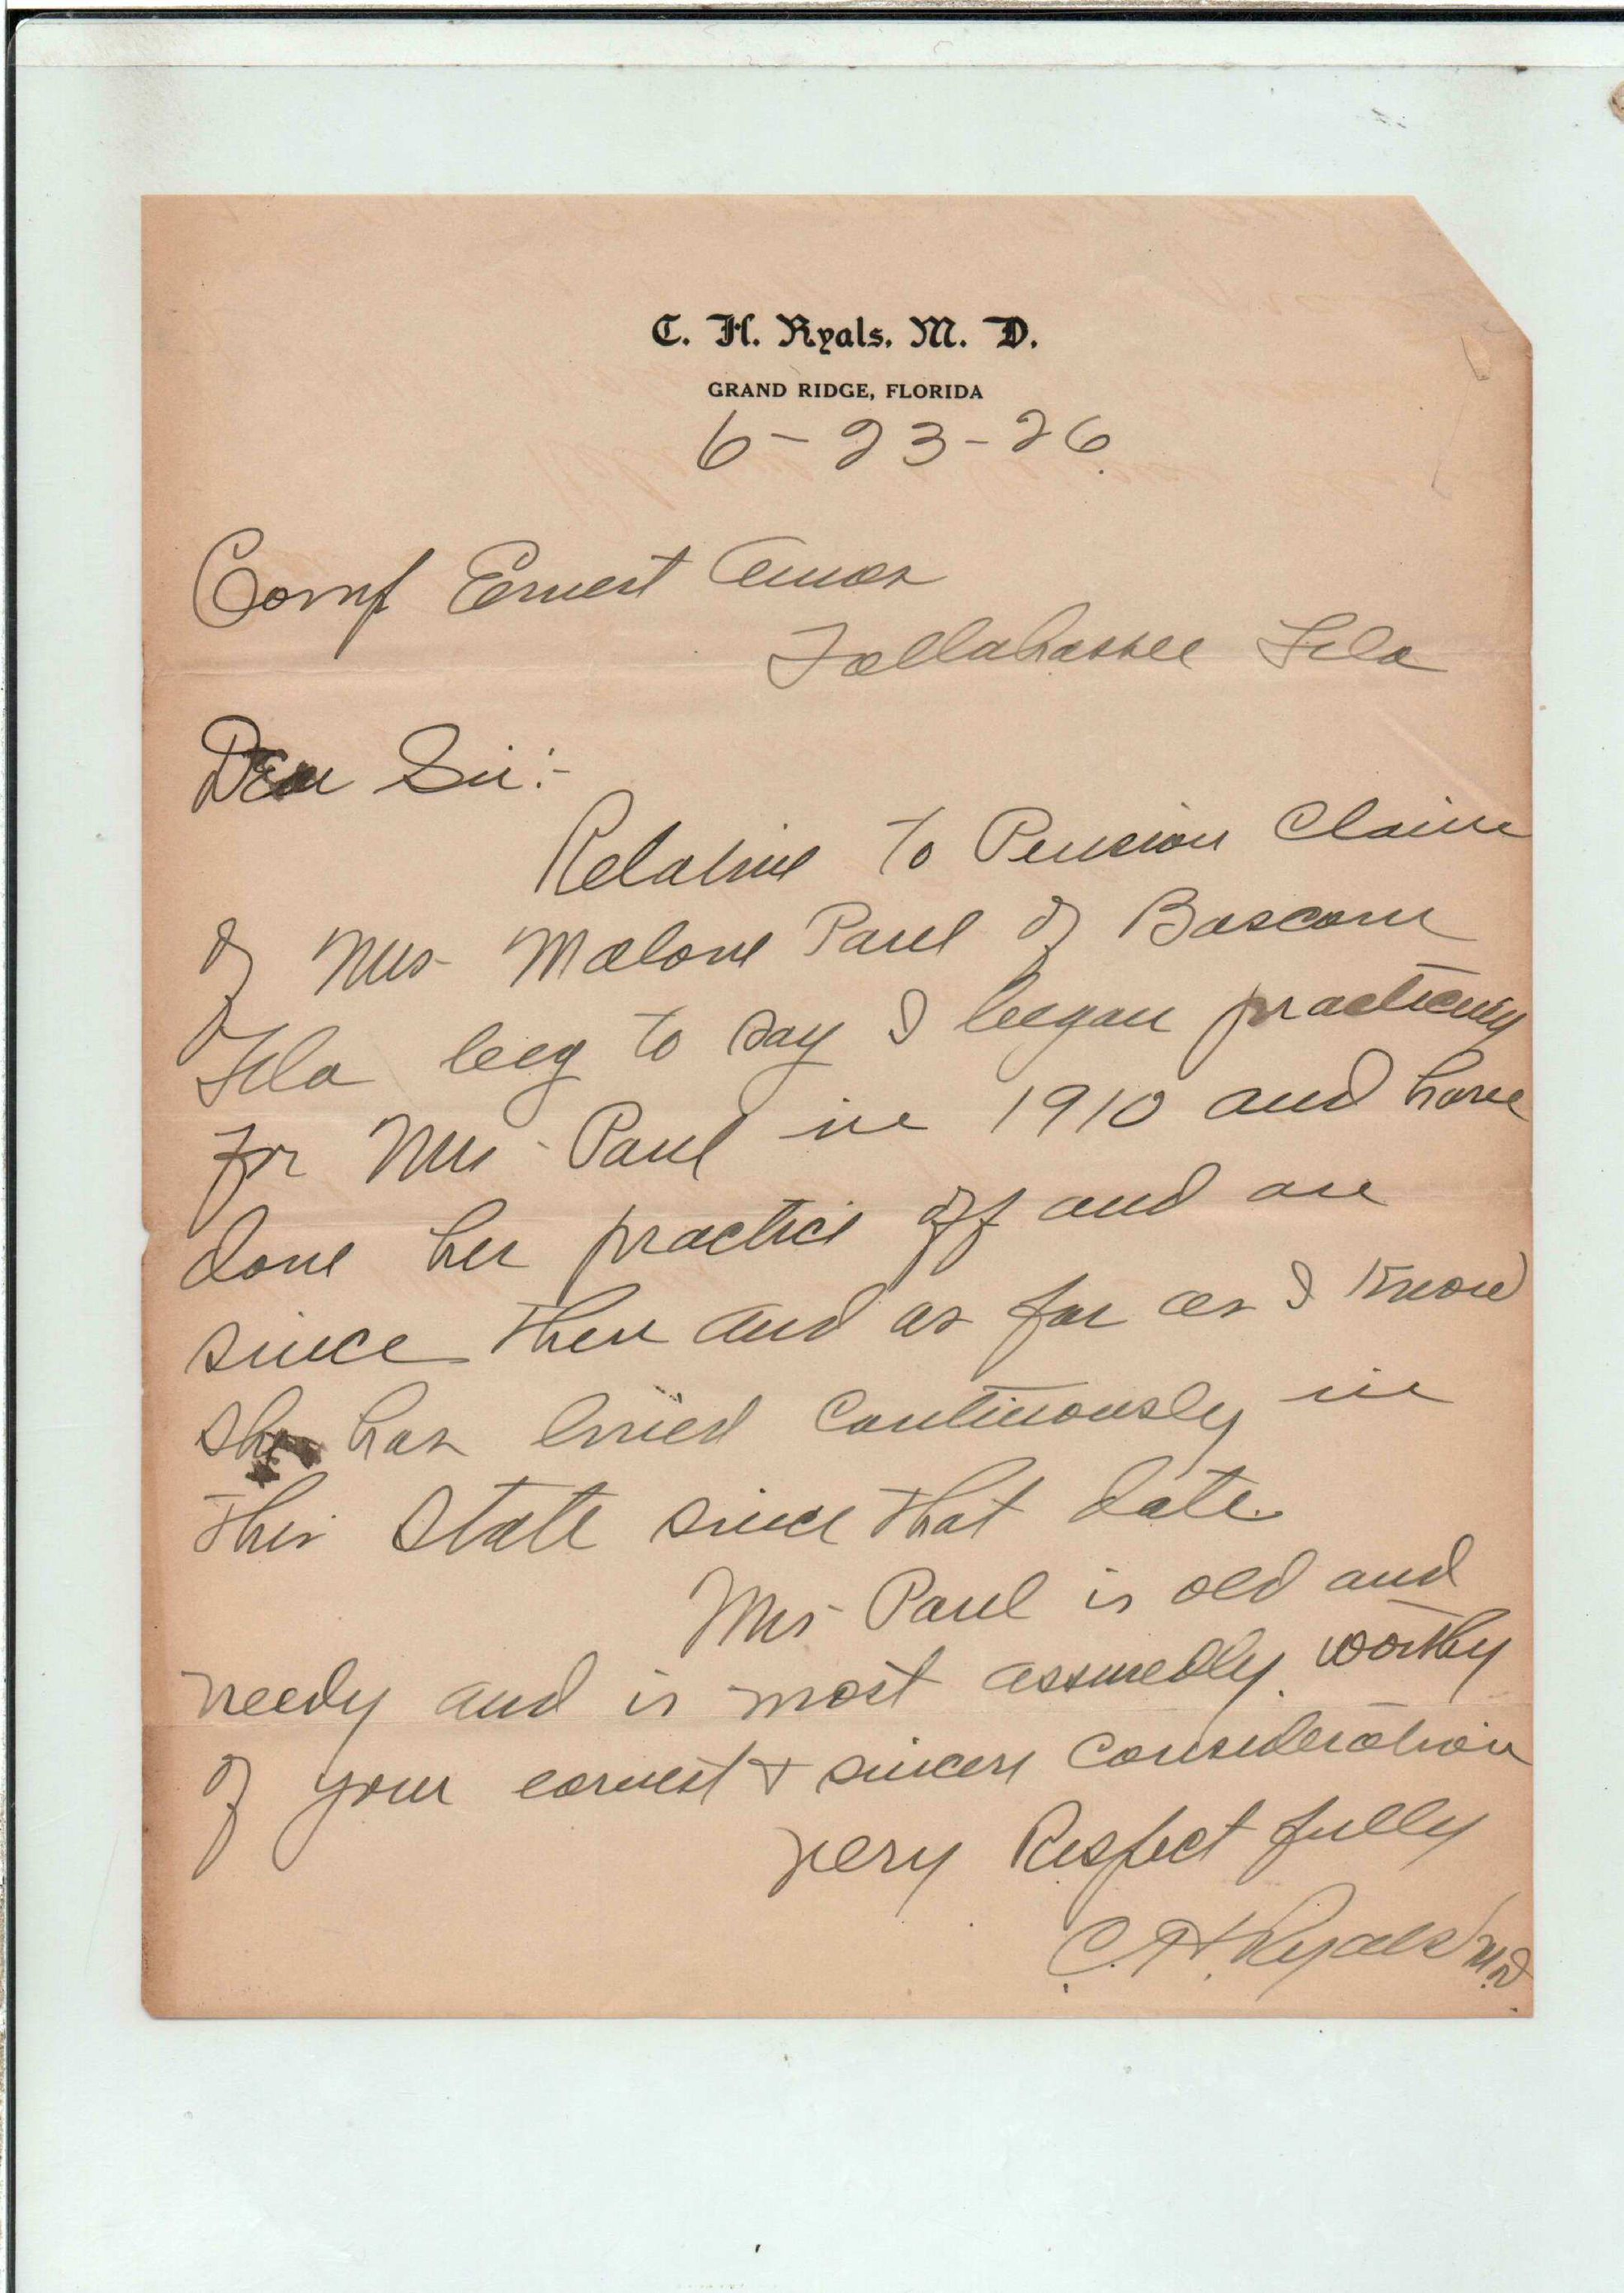 C. H. Ryals. M. D.
GRAND RIDGE, FLORIDA
6-23-26.
Comp Ernest Amos
Tallahassee Fla
Dear Sir:-
Relative to Pension Claim
of Mrs Malone Paul of Bascom
Fla beg to say I began practicing
for Mrs Paul in 1910 and have
done her practice off and on
since then and as far as I know
she has lived Continously in
this State since that date.
Mrs Paul is old and
needy and is most assuredly worthy
of your earnest & sincere Consideration
very Respect fully
C. H. Ryals M.D.